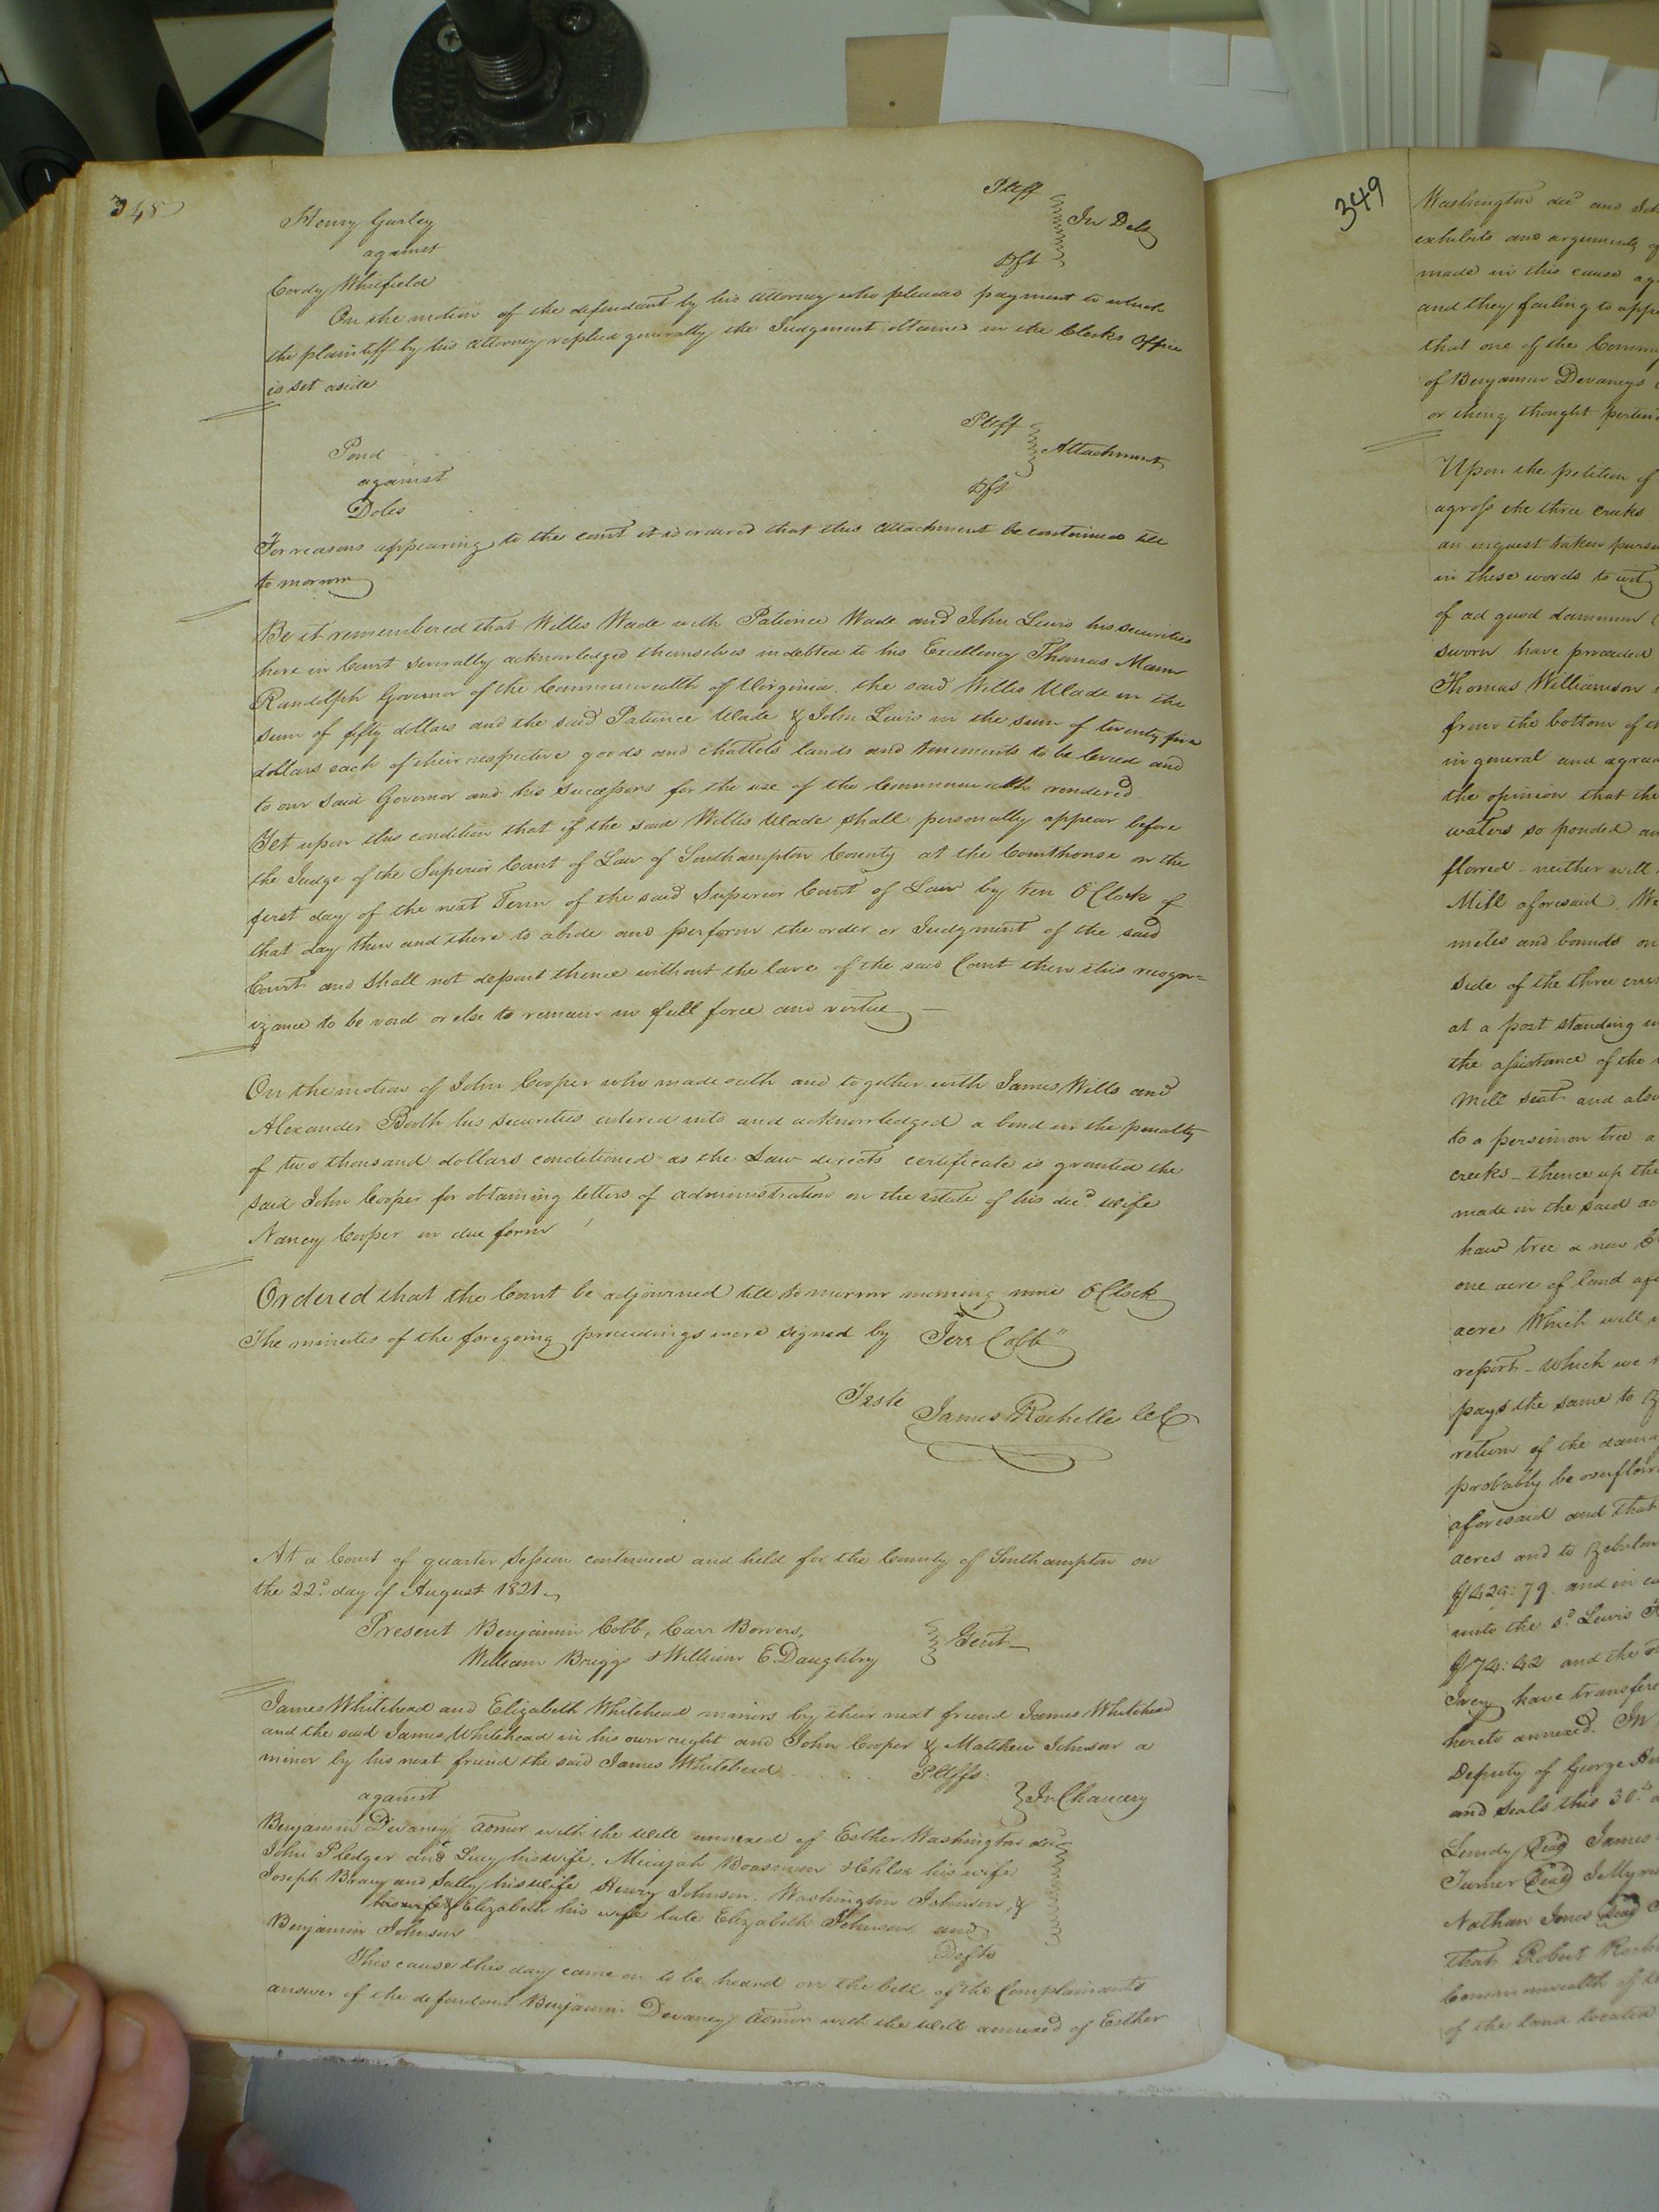 348
Henry Gurley Pltff
against In Debt
Cordy Whitfield Dft
On the motion of the defendant by his attorney who pleaded payment to which
the plaintiff by his attorney replied generally the Judgment obtained in the Clerks Office
is set aside
Pond Pltff
against Attachment
Doles Dft
For reasons appearing to the court it is ordered that this attachment be continued till
to morrow
Be it remembered that Willis Wade with Patience Wade and John Lewis his securities
here in Court severally acknowledged themselves indebted to his Excellency Thomas Mann
Randolph Governor of the Commonwealth of Virginia the said Willis Wade in the
sum of fifty dollars and the said Patience Wade & John Lewis in the sum of twenty five
dollars each of their respective goods and chattels lands and tenements to be levied and
to our said Governor and his successors for the use of the Commonwealth rendered
Yet upon this condition that if the said Willis Wade shall personally appear before
the Judge of the Superior Court of Law of Southampton County at the Courthouse on the
first day of the next Term of the said Superior Court of Law by ten O'Clock of
that day then and there to abide and perform the order or Judgment of the said
Court and shall not depart thence without the lave of the said Court then this recogn=
izance to be void or else to remain in full force and virtue
On the motion of John Cooper who made oath and together with James Wills and
Alexander Booth his securities entered into and acknowledged a bond in the penalty
of two thousand dollars conditioned as the Law directs certificate is granted the
said John Cooper for obtaining letters of administration on the estate of his decd. wife
Nancy Cooper in due form
Ordered that the Court be adjourned till to morrow morning nine O'Clock
The minutes of the foregoing proceedings were signed by "Jere Cobb"
Teste James Rochelle CC
At a Court of quarter Session continued and held for the County of Southampton on
the 22d. day of August 1821
Present Benjamin Cobb, Carr Bowers,
William Briggs & William E Daughtry Gent
James Whitehead and Elizabeth Whitehead minors by their next friend James Whitehead
and the said James Whitehead in his own right and John Cooper & Matthew Johnson a
minor by his next friend the said James Whitehead Pltffs.
against In Chancery
Benjamin Devaney admor with the will annexed of Esther Washington decd
John Pledger and Lucy his wife, Micajah & Chloe his wife
Joseph Bracy and Sally his wife Henry Johnson, Washington Johnson, &
his wife & Elizabeth his wife late Elizabeth Johnson and
Benjamin Johnson Defts
This cause this day came on to be heard on the bill of the Complainants
answer of the defendant Benjamin Devaney admor with the will annexed of Esther
349
Washington decd and
exhibits and arguments of
made in this cause
and they failing to
that one of the
of Benjamin Devaneys
or thing thought
Upon the petition of
across the three creeks
an inquest taken
in these words to wit
of ad quod damnum
sworn have proceeded
Thomas Williamson
from the bottom of
in general and
the opinion that the
waters so ponded
flowed - neither will
Mill aforesaid. We
metes and bounds on
side of the three
at a post standing
the assistance of the
Mill seat and also
to a persimon tree a
creeks - thence up the
made in the said
haw tree a new
one acre of land
acre Which will
report - Which we
pays the same to
return of the
probably be
aforesaid and that
acres and to
$429:79. and in
unto the sd. Lewis
$74:42 and the
Ivey have
hereto annexed. In
Deputy of George
and seals this 30th.
Lundy Seal James
Turner Seal
Nathan Jones Seal
That Robert
Commonwealth of
of the land located